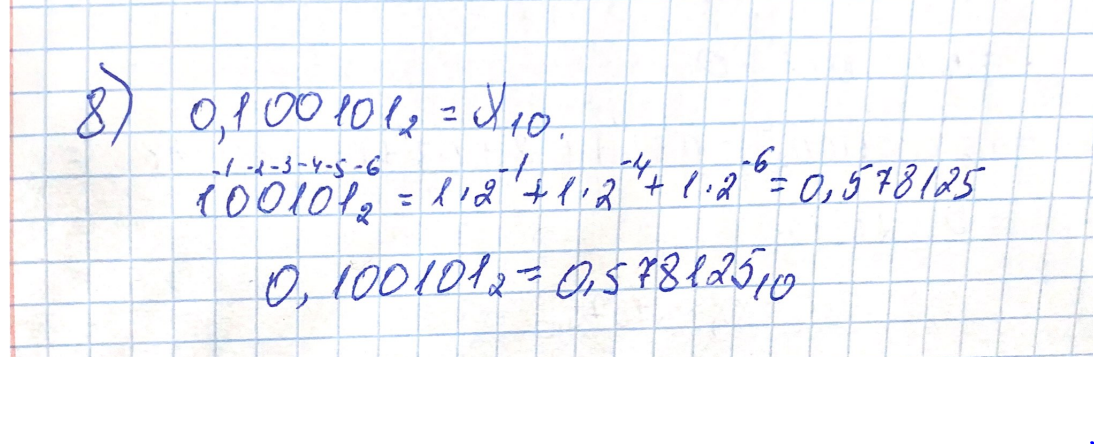 8) 0,100101₂ = X₁₀.
-1 -2 -3 -4 -5 -6
100101₂ = 1·2⁻¹ + 1·2⁻⁴ + 1·2⁻⁶ = 0,578125
0,100101₂ = 0,578125₁₀